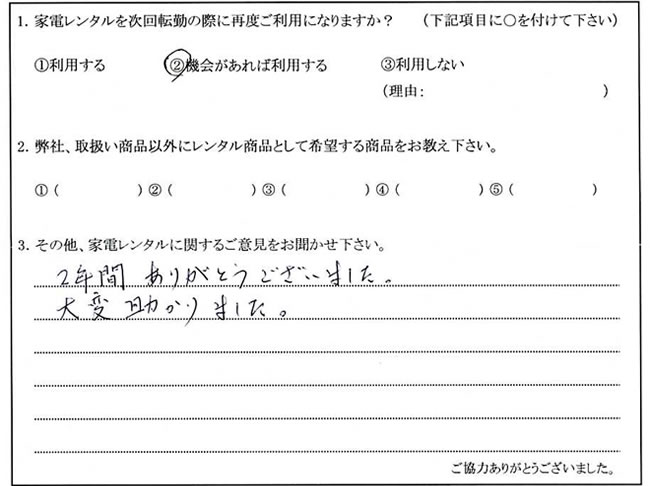 1. 家電レンタルを次回転勤の際に再度ご利用になりますか？ （下記項目に○を付けて下さい）
①利用する ②機会があれば利用する ③利用しない
（理由： ）
2. 弊社、取扱い商品以外にレンタル商品として希望する商品をお教え下さい。
①（ ）②（ ）③（ ）④（ ）⑤（ ）
3. その他、家電レンタルに関するご意見をお聞かせ下さい。
2年間 ありがとうございました。
大変 助かりました。
ご協力ありがとうございました。